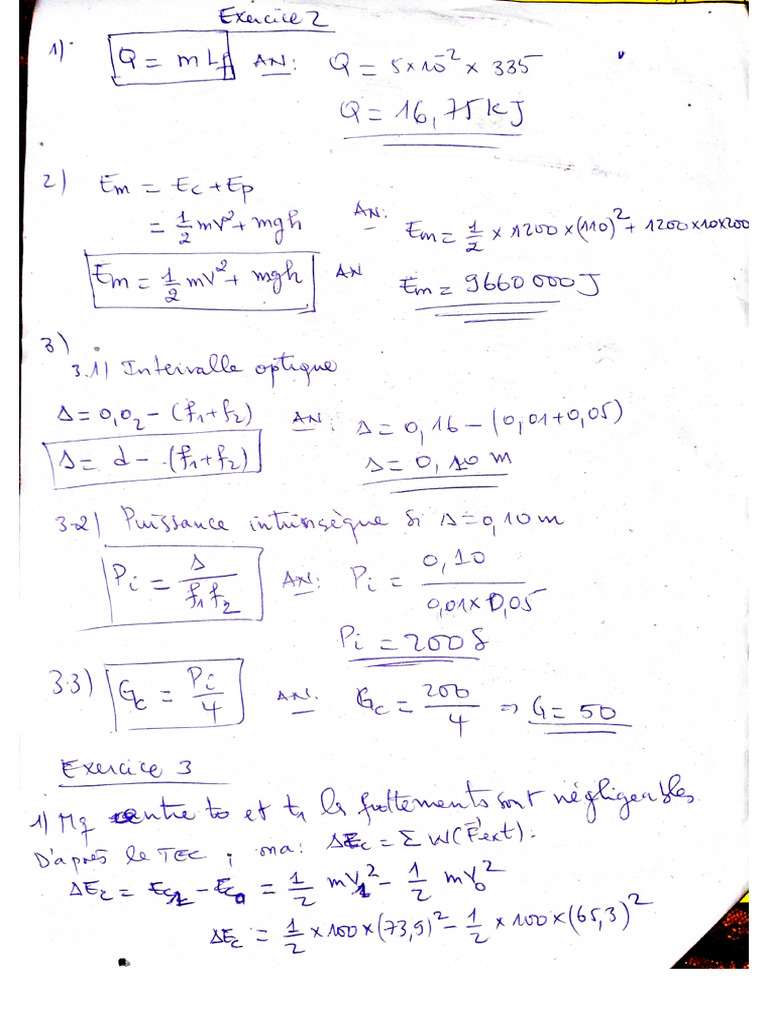 Exercice 2
1) Q = m Lf AN: Q = 5×10⁻² × 335
Q = 16,75 kJ
2) Em = Ec + Ep
= 1/2 mV² + mgh AN: Em = 1/2 × 1200 × (110)² + 1200×10×200
Em = 1/2 mV² + mgh AN Em = 9660 000 J
3)
3.1) Intervalle optique
Δ = O₁O₂ – (f₁+f₂) AN: Δ = 0,16 – (0,01+0,05)
Δ = d – (f₁+f₂) Δ = 0,10 m
3-2) Puissance intrinsèque si Δ = 0,10 m
Pi = Δ/f₁f₂ AN: Pi = 0,10/0,01×0,05
Pi = 200 δ
3.3) Gc = Pi/4 AN: Gc = 200/4 => G = 50
Exercice 3
1) Mq entre t₀ et t₁ les frottements sont négligeables
D'après le TEC ; on a: ΔEc = Σ W(F⃗ext).
ΔEc = Ec₁ – Ec₀ = 1/2 mV₁² – 1/2 mV₀²
ΔEc = 1/2 × 100 × (73,9)² – 1/2 × 100 × (65,3)²